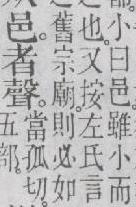 小曰邑雖小而
也。又按左氏言
之舊宗廟。則必如
邑。者聲。當孤切。
五部。